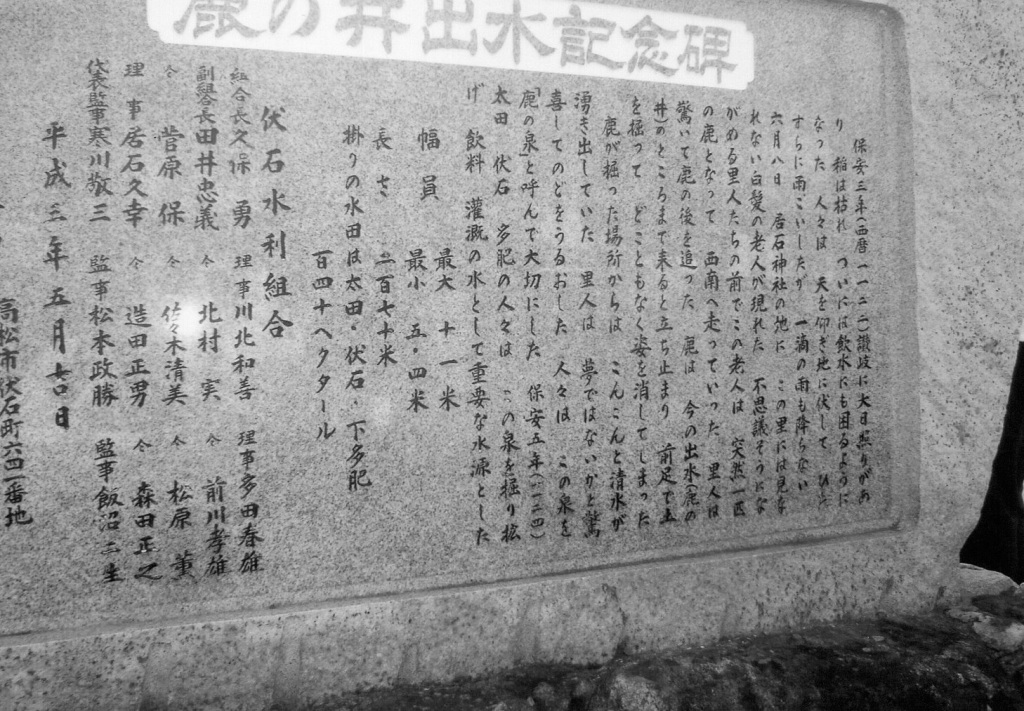 鹿の井出水記念碑
保安三年(西暦一一二二)讃岐に大日照りがあ
り 稲は枯れ ついには飲水にも困るように
なった 人々は 天を仰ぎ地に伏して ひた
すらに雨ごいしたが 一滴の雨も降らない
六月八日 居石神社の地に この里には見な
れない白髪の老人が現れた 不思議そうにな
がめる里人たちの前でこの老人は 突然一匹
の鹿となって 西南へ走っていった 里人は
驚いて鹿の後を追った 鹿は 今の出水(鹿の
井)のところまで来ると立ち止まり 前足で土
を掘って どこともなく姿を消してしまった
鹿が掘った場所からは こんこんと清水が
湧き出していた 里人は 夢ではないかと驚
喜してのどをうるおした 人々は この泉を
「鹿の泉」と呼んで大切にした 保安五年(一一二四)
太田 伏石 多肥の人々は この泉を掘り拡
げ 飲料 灌漑の水として重要な水源とした
幅員 最大 十一米
最小 五・四米
長さ 二百七十米
掛りの水田は太田・伏石・下多肥
百四十ヘクタール
伏石水利組合
組合長 久保 勇 理事 川北和善 理事 多田春雄
副組合長 田井忠義 〃 北村 実 〃 前川孝雄
〃 菅原 保 〃 佐々木清美 〃 松原 薫
理事 居石久幸 〃 造田正男 〃 森田正之
代表監事 寒川敬三 監事 松本政勝 監事 飯沼二生
平成三年五月吉日
高松市伏石町六四一番地